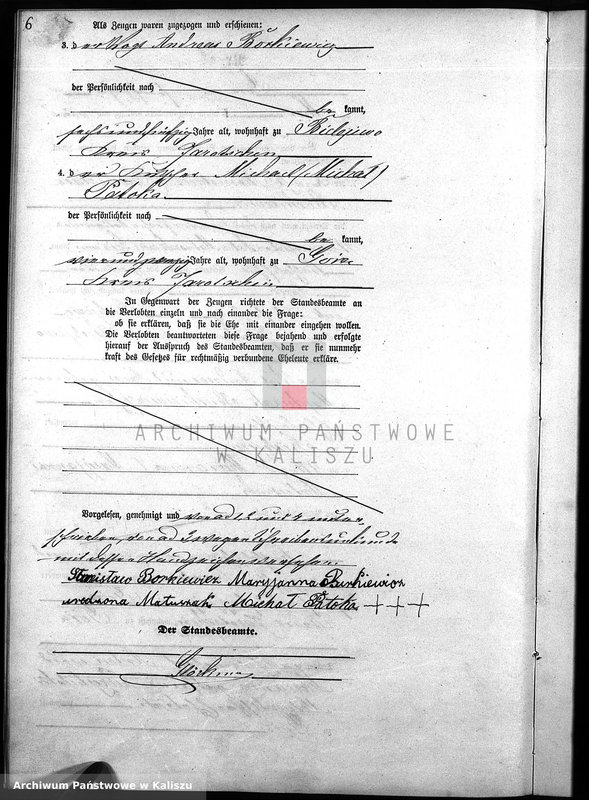 6
Als Zeugen waren zugezogen und erschienen:
3. der Vogt Andreas Borkiewicz
der Persönlichkeit nach
be kannt,
sechsundfünfzig Jahre alt, wohnhaft zu
Kreis Jarotschin
4. der Kutscher Michael (Michał)
Patoka
der Persönlichkeit nach
be kannt,
Jahre alt, wohnhaft zu Gola
Kreis Jarotschin
In Gegenwart der Zeugen richtete der Standesbeamte an
die Verlobten einzeln und nach einander die Frage:
ob sie erklären, daß sie die Ehe mit einander eingehen wollen.
Die Verlobten beantworteten diese Frage bejahend und erfolgte
hierauf der Ausspruch des Standesbeamten, daß er sie nunmehr
kraft des Gesetzes für rechtmäßig verbundene Eheleute erkläre.
ARCHIWUM PAŃSTWOWE
W KALISZU
Vorgelesen, genehmigt und von ad 1, 2 und 4 unter-
schrieben, von ad 3 wegen Schreibensunkunde
mit dessen Handzeichen versehen
Stanisław Borkiewicz Maryjanna Burkiewicz
urodzona Matuszak Michał Patoka +++
Der Standesbeamte.
Archiwum Państwowe w Kaliszu